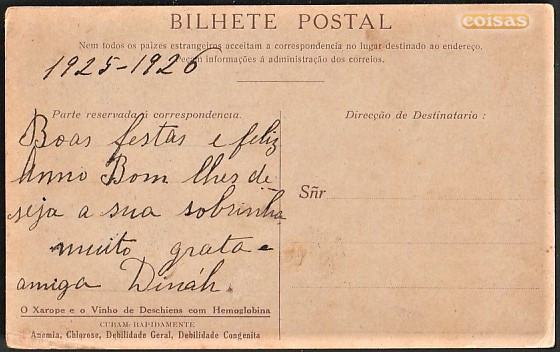 BILHETE POSTAL
coisas
Nem todos os paizes estrangeiros acceitam a correspondencia no logar destinado ao endereço.
Peçam informações á administração dos correios.
1925-1926
Parte reservada á correspondencia.
Boas festas e feliz
Anno Bom lhes de-
seja a sua sobrinha
muito grata e
amiga Dináh.
O Xarope e o Vinho de Deschiens com Hemoglobina
CURAM RAPIDAMENTE
Anemia, Chlorose, Debilidade Geral, Debilidade Congenita
Direcção de Destinatario :
Sñr